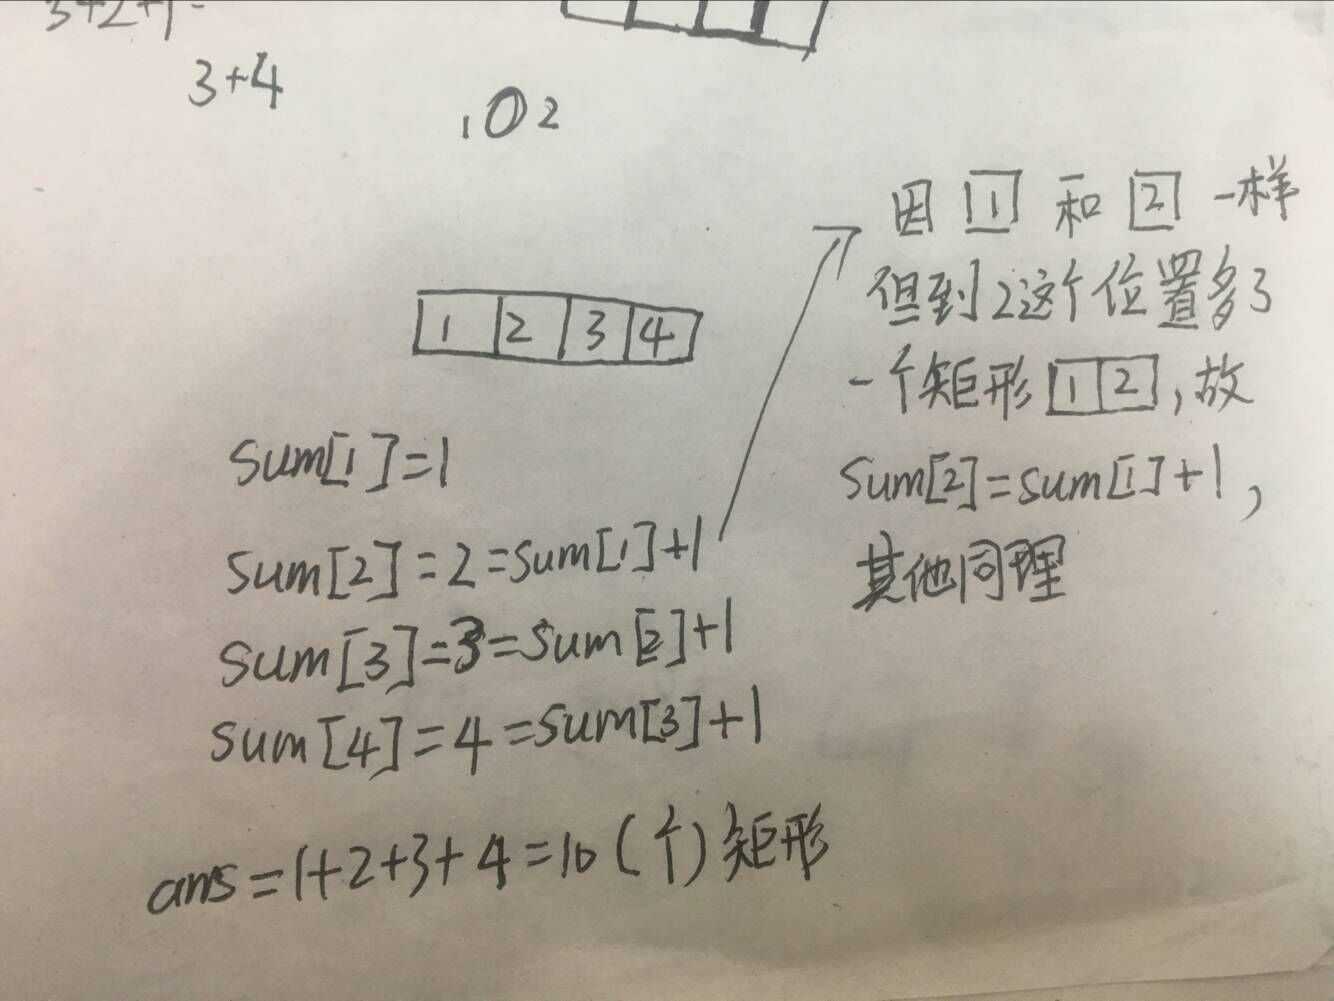 3+2+1=
3+4
1 0 2
1 2 3 4
sum[1]=1
sum[2]=2=sum[1]+1
sum[3]=3=sum[2]+1
sum[4]=4=sum[3]+1
ans=1+2+3+4=10(个)矩形
因 1 和 2 一样
但到2这个位置多了
一个矩形 1 2,故
sum[2]=sum[1]+1,
其他同理